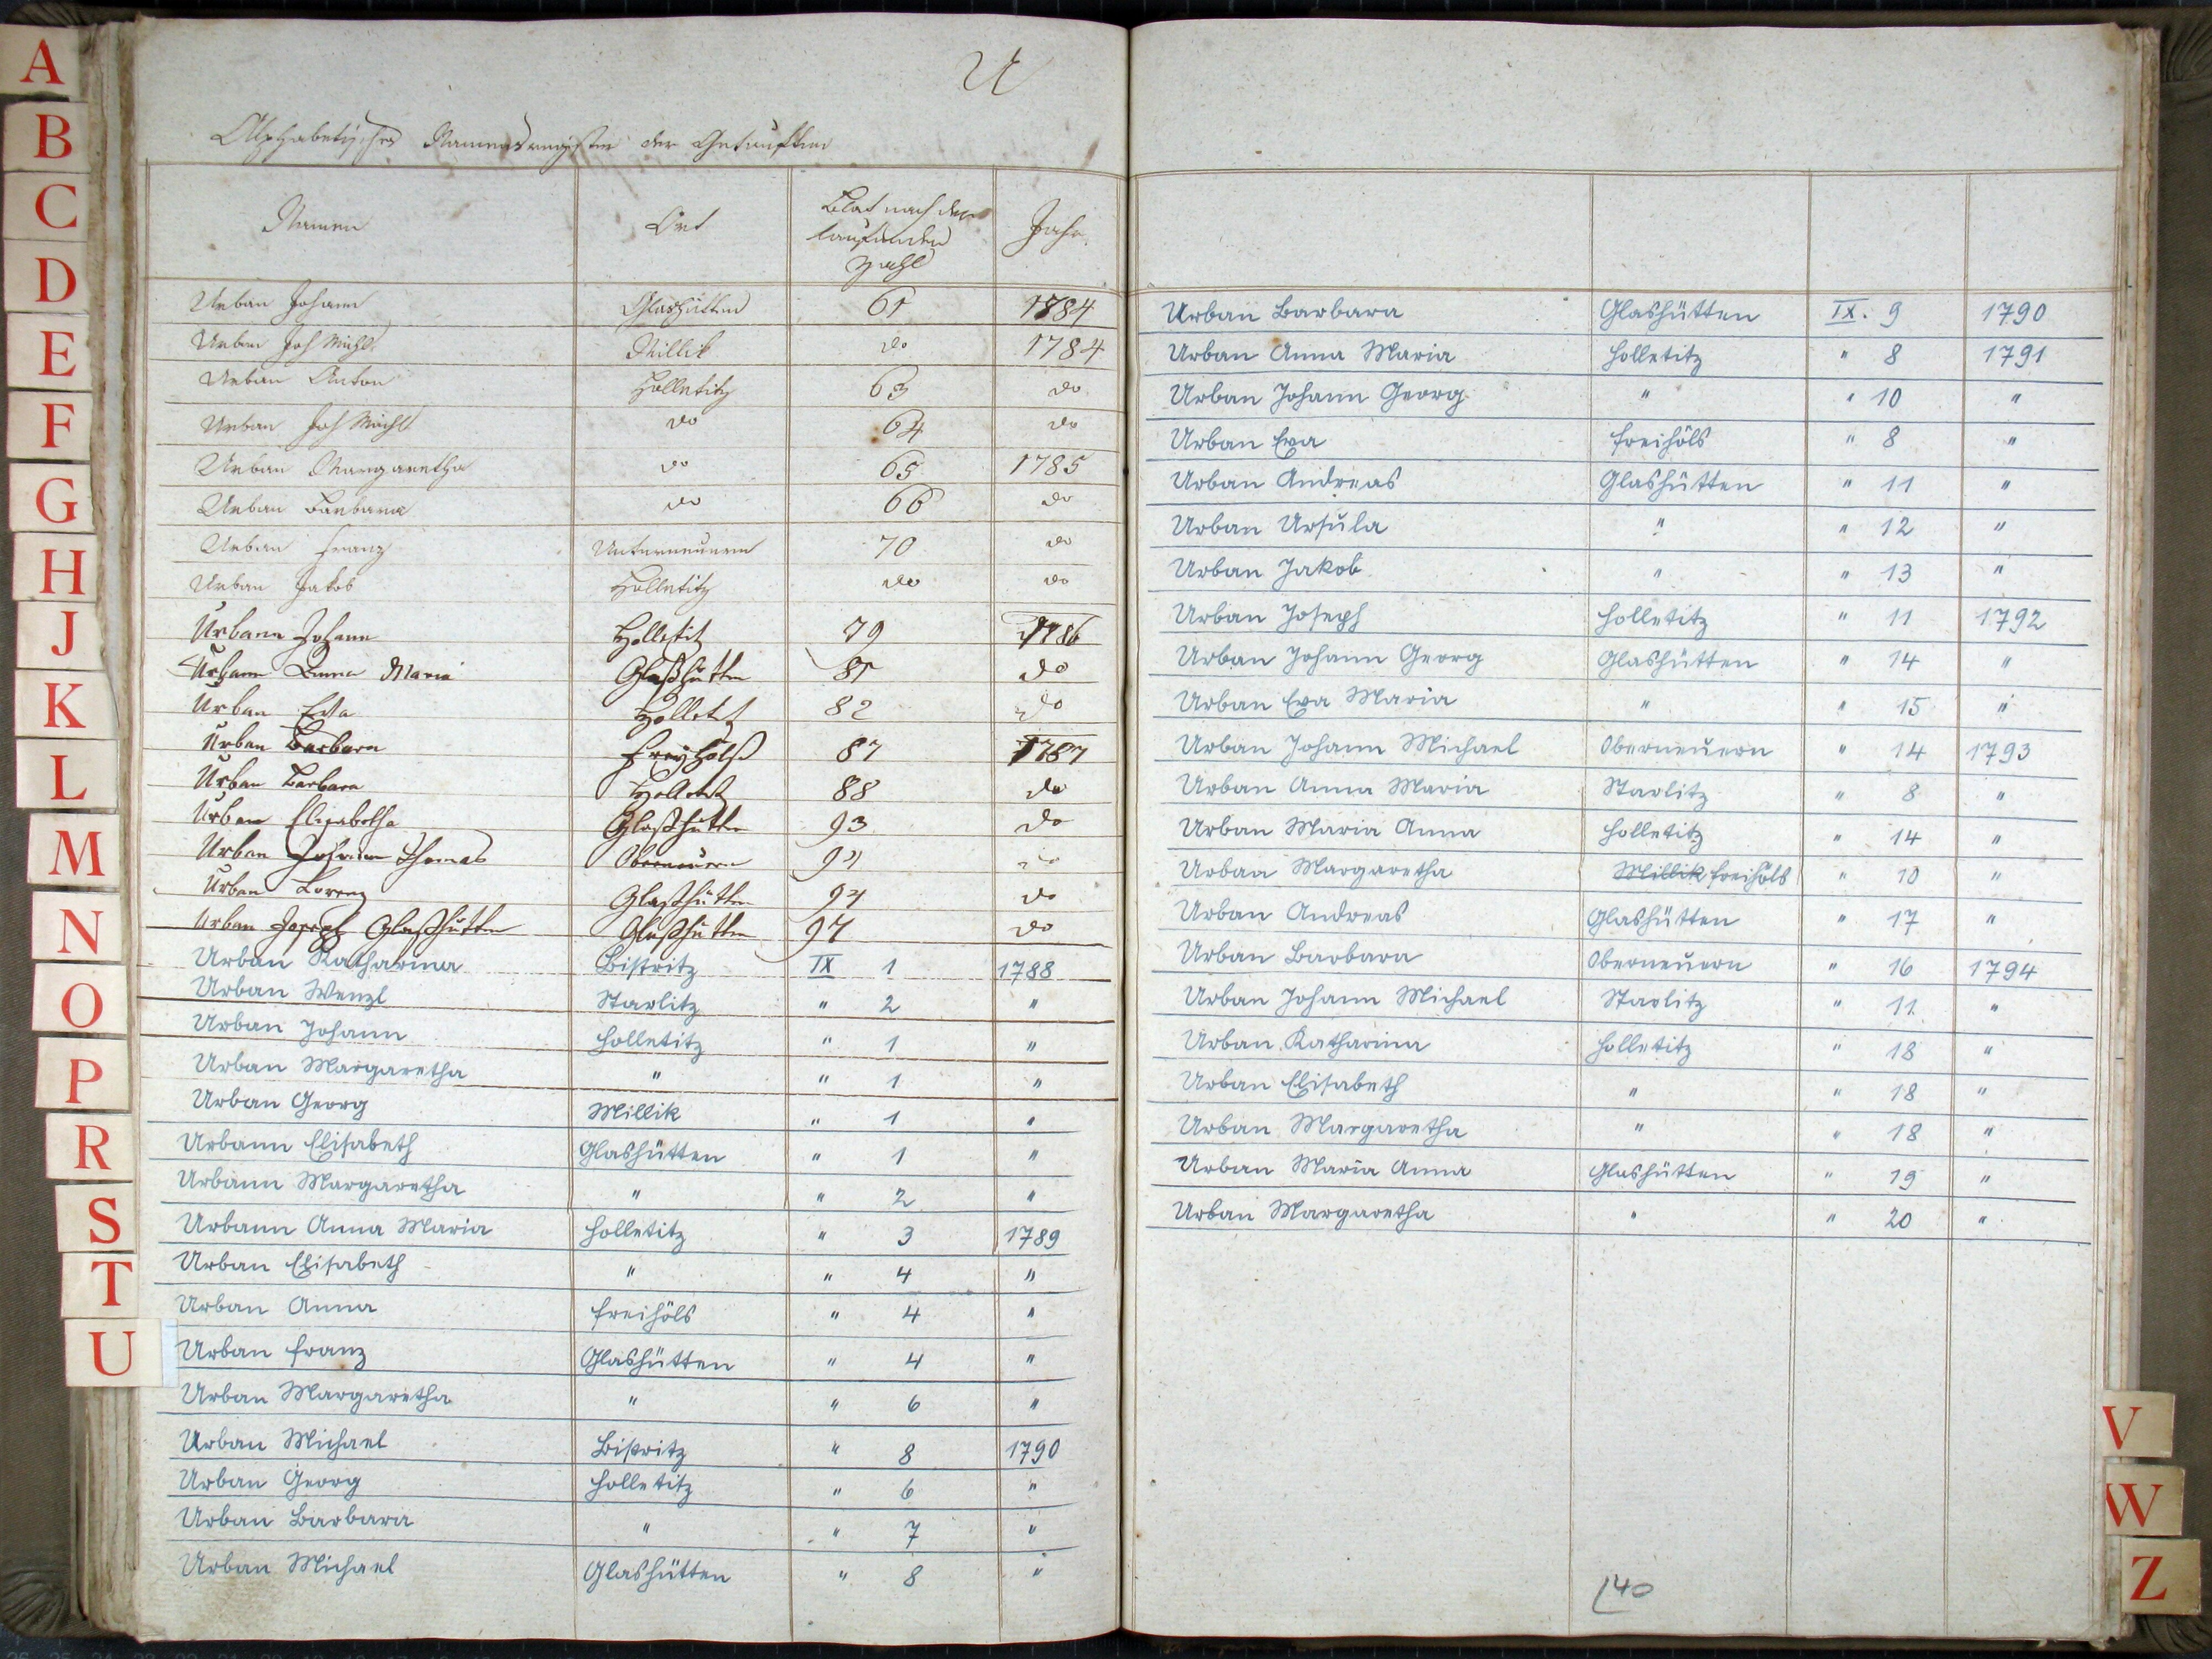 U
Alphabetisches Namensregister der Getauften
Namen Ort Blat nach der laufenden Zahl Jahr
Urban Johann Glashütten 61 1784
Urban Joh Michl Millik do 1784
Urban Anton Holletitz 63 do
Urban Joh Michl do 64 do
Urban Margaretha do 65 1785
Urban Barbara do 66 do
Urban Franz Unterneuern 70 do
Urban Jakob Holletitz do do
Urbann Johann Holletitz 79 1786
Urbann Anna Maria Glaßhütten 81 do
Urban Eva Holletitz 82 do
Urban Barbara Freyhölß 87 1787
Urban Barbara Holletitz 88 do
Urban Elisabetha Glaßhütten 93 do
Urban Johann Thomas Oberneuern do
Urban Lorenz Glaßhütten 94 do
Urban Joseph Glaßhütten Glaßhütten 97 do
Urban Katharina Bistritz IX 1 1788
Urban Wenzl Starlitz " 2 "
Urban Johann Holletitz " 1 "
Urban Margaretha " " 1 "
Urban Georg Millik " 1 "
Urbann Elisabeth Glashütten " 1 "
Urbann Margaretha " " 2 "
Urbann Anna Maria Holletitz " 3 1789
Urban Elisabeth " " 4 "
Urban Anna Freihöls " 4 "
Urban Franz Glashütten " 4 "
Urban Margaretha " " 6 "
Urban Michael Bistritz " 8 1790
Urban Georg Holletitz " 6 "
Urban Barbara " " 7 "
Urban Michael Glashütten " 8 "
Urban Barbara Glashütten IX. 9 1790
Urban Anna Maria Holletitz " 8 1791
Urban Johann Georg " " 10 "
Urban Eva Freihöls " 8 "
Urban Andreas Glashütten " 11 "
Urban Ursula " " 12 "
Urban Jakob " " 13 "
Urban Joseph Holletitz " 11 1792
Urban Johann Georg Glashütten " 14 "
Urban Eva Maria " " 15 "
Urban Johann Michael Oberneuern " 14 1793
Urban Anna Maria Starlitz " 8 "
Urban Maria Anna Holletitz " 14 "
Urban Margaretha Millik Freihöls " 10 "
Urban Andreas Glashütten " 17 "
Urban Barbara Oberneuern " 16 1794
Urban Johann Michael Starlitz " 11 "
Urban Katharina Holletitz " 18 "
Urban Elisabeth " " 18 "
Urban Margaretha " " 18 "
Urban Maria Anna Glashütten " 19 "
Urban Margaretha " " 20 "
140
A
B
C
D
E
F
G
H
J
K
L
M
N
O
P
R
S
T
U
V
W
Z